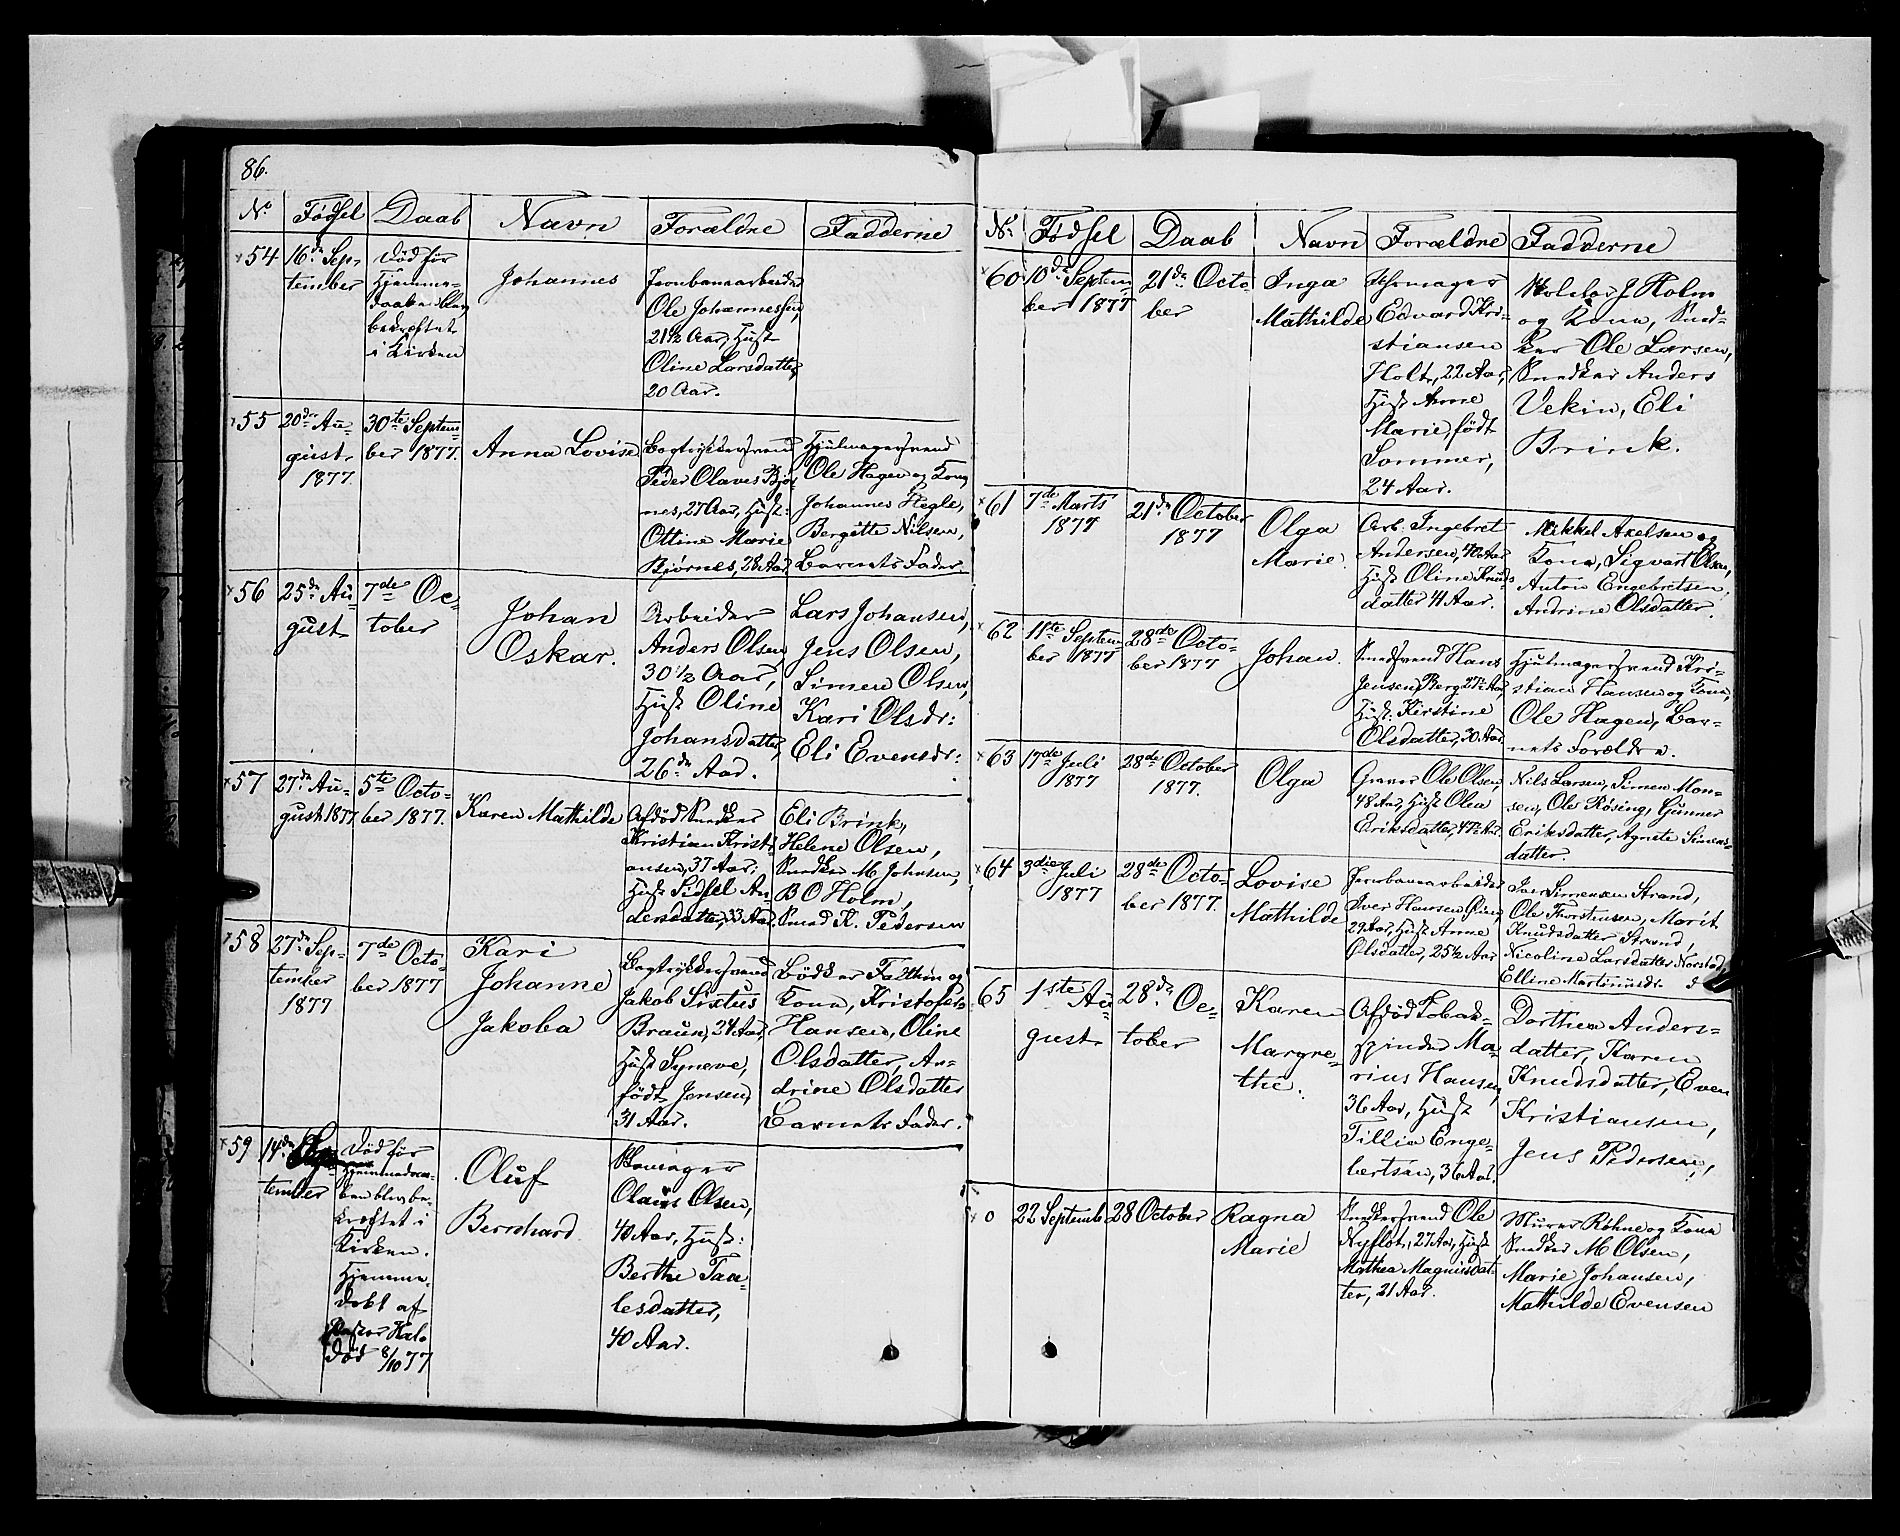 86.
No. Fødsel Daab Navn Forældre Fadderne
54 16de Sep-
tember
Død før
Hjemme-
daaben blev
bekræftet
i Kirken
Johannes
Jernbanearbeider
Ole Johannessen,
21½ Aar, Hust
Oline Larsdatter,
20 Aar.
55 20de Au-
gust
1877.
30te Septem-
ber 1877.
Anna Lovise
Bogtrykkersvend
Peder Olaves Bjør
nes, 27 Aar, Hust:
Ottine Marie
Bjørnes, 28 Aar
Hjulmagersvend
Ole Hagen og Kone
Johannes Hegle,
Bergitte Nilsen,
Barnets Fader.
56 25de Au-
gust
7de Oc-
tober
Johan
Oskar.
Arbeider
Anders Olsen
30 1/2 Aar,
Hust Oline
Johansdatter,
26de Aar.
Lars Johansen,
Jens Olsen,
Simen Olsen,
Kari Olsdr:
Eli Evensdr:
57 27de Au-
gust 1877
5te Octo-
ber 1877.
Karen Mathilde
Afdød Snedker
Kristian Kristi
ansen, 37 Aar,
Hust Sidsel An
dersdatter, 33 Aar.
Eli Brink,
Helene Olsen,
Snedker M. Johnsen,
B O Holm,
Smed K. Pedersen
58 27de Sep-
tember
1877
7de Octo-
ber 1877
Kari
Johanne
Jakoba
Bogtrykkersvend
Jakob Sixtus
Braun, 24 Aar,
Hust Syneve,
født Jensen,
31 Aar.
Bødker Falthin og
Kone, Kristofer
Hansen, Oline
Olsdatter, An-
drine Olsdatter
Barnets Fader.
59 14de Sep-
tember
Død før
Hjemmedaa-
ben blev be-
kræftet i
Kirken.
Hjemme-
døbt af
Pastor
Død 8/10 77
Oluf
Bernhard.
Skomager
Olaus Olsen,
40 Aar, Hust:
Berthe Taa-
lesdatter,
40 Aar.
No. Fødsel Daab Navn Forældre Fadderne
60 10de Septem-
ber 1877
21de Octo-
ber
Inga
Mathilde
Skomager
Edvard Kri-
stiansen
Holt, 22 Aar,
Hust Anne
Marie, født
Sommer,
24 Aar.
J. Holm
og Kone, Sned-
ker Ole Larsen,
Snedker Anders
Vekin, Eli
Brink.
61 7de Marts
1877
21de October
1877
Olga
Marie.
Arb. Ingebret
Andersen, 40 Aar
Hust Oline Knuds
datter 41 Aar.
Mikkel Axelsen og
Kone, Sigvart Olsen,
Anton Engebretsen,
Andrine Olsdatter.
62 11te Septem-
ber 1877
28de Octo-
ber 1877
Johan.
Smedsvend Hans
Jensen Berg 27½ Aar
Hust: Kirstine
Olsdatter, 30 Aar.
Hjulmagersvend Kri-
stian Hansen og Kone,
Ole Hagen, Bar-
nets Forældre.
63 17de Juli
1877
28de October
1877.
Olga
Graver Ole Olsen,
48 Aar, Hust Olea
Eriksdatter, 47½ Aar.
Nils Larsen, Simen Mon-
sen, Ole Røsing, Gunner
Eriksdatter, Agnete Simens-
datter.
64 3die Juli
1877
28de Octo-
ber 1877.
Lovise
Mathilde
Jernbanearbeider
Iver Hansen
29 Aar, Hust Anne
Olsdatter, 25½ Aar
Simensen Strand,
Ole Thorstensen, Marit
Knudsdatter Strand,
Nicoline Larsdatter Norstad,
Elline Martinusdr.
65 1ste Au-
gust
28de Oc-
tober
Karen
Margre-
the.
Afdød Tobak-
spinder Ma-
rius Hansen,
36 Aar, Hust
Tillia Enge-
bertsen, 36 Aar.
Dorthea Anders-
datter, Karen
Knudsdatter, Even
Kristiansen,
Jens Pedersen,
0 22 Septembe 28 October Ragna
Marie
Snedkersvend Ole
Nyfløt, 27 Aar, Hust
Mathea Magnusdat-
ter, 21 Aar.
Murer Røhne og Kone
Snedker M Olsen,
Marie Johansen,
Mathilde Evensen